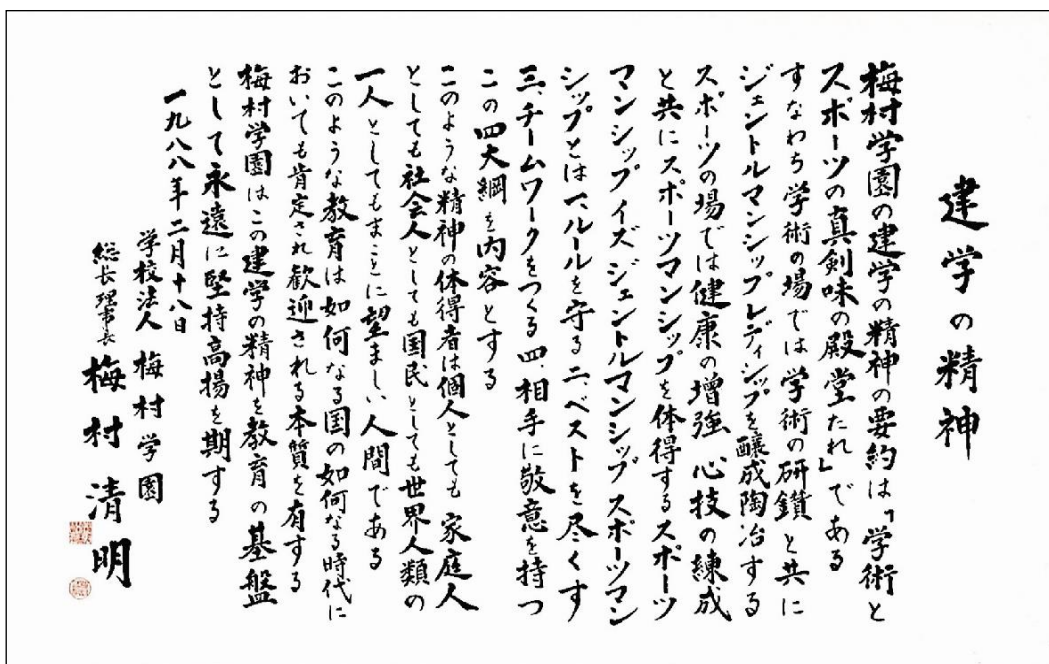 建学の精神
梅村学園の建学の精神の要約は「学術と
スポーツの真剣味の殿堂たれ」である
すなわち学術の場では学術の研鑽と共に
ジェントルマンシップレディシップを醸成陶冶する
スポーツの場では健康の増強 心技の練成
と共にスポーツマンシップを体得するスポーツ
マンシップイズジェントルマンシップスポーツマン
シップとは一、ルールを守る二、ベストを尽くす
三、チームワークをつくる四、相手に敬意を持つ
この四大綱を内容とする
このような精神の体得者は個人としても家庭人
としても社会人としても国民としても世界人類の
一人としてもまことに望ましい人間である
このような教育は如何なる国の如何なる時代に
おいても肯定され歓迎される本質を有する
梅村学園はこの建学の精神を教育の基盤
として永遠に堅持高揚を期する
一九八八年二月十八日
学校法人 梅村学園
総長理事長 梅村清明